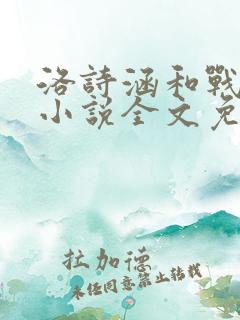 洛詩涵和戰
小說全文免
拉加德
未经同意禁止转载